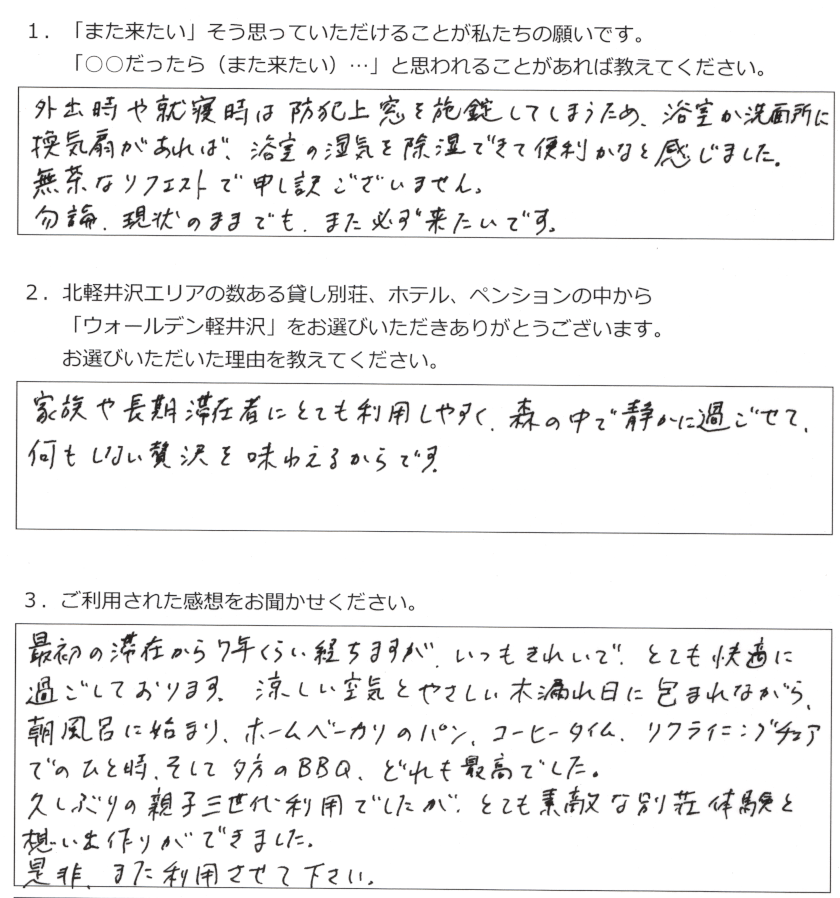 １．「また来たい」そう思っていただけることが私たちの願いです。
「○○だったら（また来たい）…」と思われることがあれば教えてください。
外出時や就寝時は防犯上窓を施錠してしまうため、浴室か洗面所に
換気扇があれば、浴室の湿気を除湿できて便利かなと感じました。
無茶なリクエストで申し訳ございません。
勿論、現状のままでも、また必ず来たいです。
２．北軽井沢エリアの数ある貸し別荘、ホテル、ペンションの中から
「ウォールデン軽井沢」をお選びいただきありがとうございます。
お選びいただいた理由を教えてください。
家族や長期滞在者にとても利用しやすく、森の中で静かに過ごせて、
何もしない贅沢を味わえるからです。
３．ご利用された感想をお聞かせください。
最初の滞在から7年くらい経ちますが、いつもきれいで、とても快適に
過ごしております。涼しい空気とやさしい木漏れ日に包まれながら、
朝風呂に始まり、ホームベーカリのパン、コーヒータイム、リクライニングチェア
でのひと時、そして夕方のBBQ、どれも最高でした。
久しぶりの親子三世代利用でしたが、とても素敵な別荘体験と
想い出作りができました。
是非、また利用させて下さい。